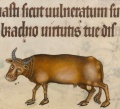 liasti sicut uulneratum su
brachio uirtutis tue dis